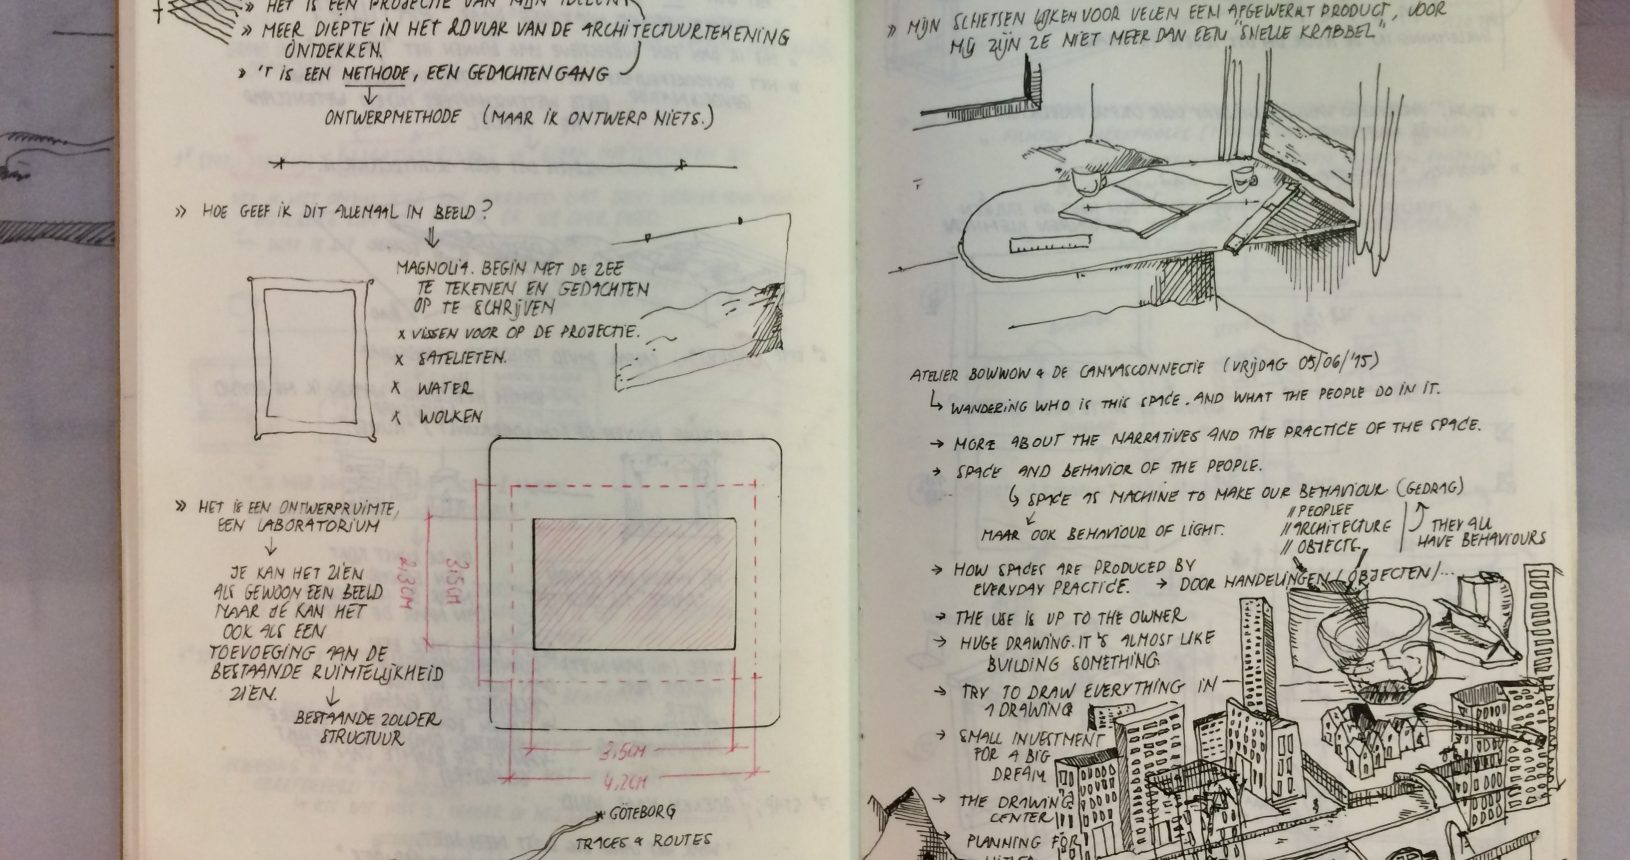 » HET IS EEN PROJECTIE VAN MIJN IDEEËN
» MEER DIEPTE IN HET 2D VLAK VAN DE ARCHITECTUURTEKENING
ONTDEKKEN.
» 'T IS EEN METHODE, EEN GEDACHTENGANG
ONTWERPMETHODE (MAAR IK ONTWERP NIETS.)
» HOE GEEF IK DIT ALLEMAAL IN BEELD?
MAGNOLIA. BEGIN MET DE ZEE
TE TEKENEN EN GEDACHTEN
OP TE SCHRIJVEN
x VISSEN VOOR OP DE PROJECTIE.
x SATELIETEN.
x WATER
x WOLKEN
» HET IS EEN ONTWERPRUIMTE,
EEN LABORATORIUM
JE KAN HET ZIEN
ALS GEWOON EEN BEELD
MAAR JE KAN HET
OOK ALS EEN
TOEVOEGING AAN DE
BESTAANDE RUIMTELIJKHEID
ZIEN.
BESTAANDE ZOLDER
STRUCTUUR
2,3CM
3,5CM
3,5CM
4,2CM
x GÖTEBORG
TRACES & ROUTES
» MIJN SCHETSEN LIJKEN VOOR VELEN EEN AFGEWERKT PRODUCT, VOOR
MIJ ZIJN ZE NIET MEER DAN EEN "SNELLE KRABBEL"
ATELIER BOWWOW & DE CANVASCONNECTIE (VRIJDAG 05/06/'15)
↳ WANDERING WHO IS THIS SPACE. AND WHAT THE PEOPLE DO IN IT.
→ MORE ABOUT THE NARRATIVES AND THE PRACTICE OF THE SPACE.
→ SPACE AND BEHAVIOR OF THE PEOPLE.
↳ SPACE AS MACHINE TO MAKE OUR BEHAVIOUR (GEDRAG)
MAAR OOK BEHAVIOUR OF LIGHT.
// PEOPLEE
// ARCHITECTURE
// OBJECTS
THEY ALL
HAVE BEHAVIOURS
→ HOW SPACES ARE PRODUCED BY
EVERYDAY PRACTICE. → DOOR HANDELINGEN / OBJECTEN /...
→ THE USE IS UP TO THE OWNER
→ HUGE DRAWING. IT'S ALMOST LIKE
BUILDING SOMETHING
→ TRY TO DRAW EVERYTHING IN
1 DRAWING
→ SMALL INVESTMENT
FOR A BIG
DREAM
→ THE DRAWING
CENTER
→ PLANNING FOR